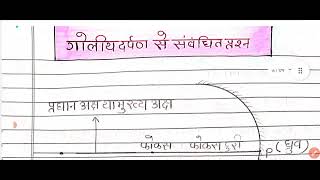 गोलीय दर्पण से संबंधित प्रश्न
प्रधान अक्ष या मुख्य अक्ष
फोकस फोकस दूरी P (ध्रुव)